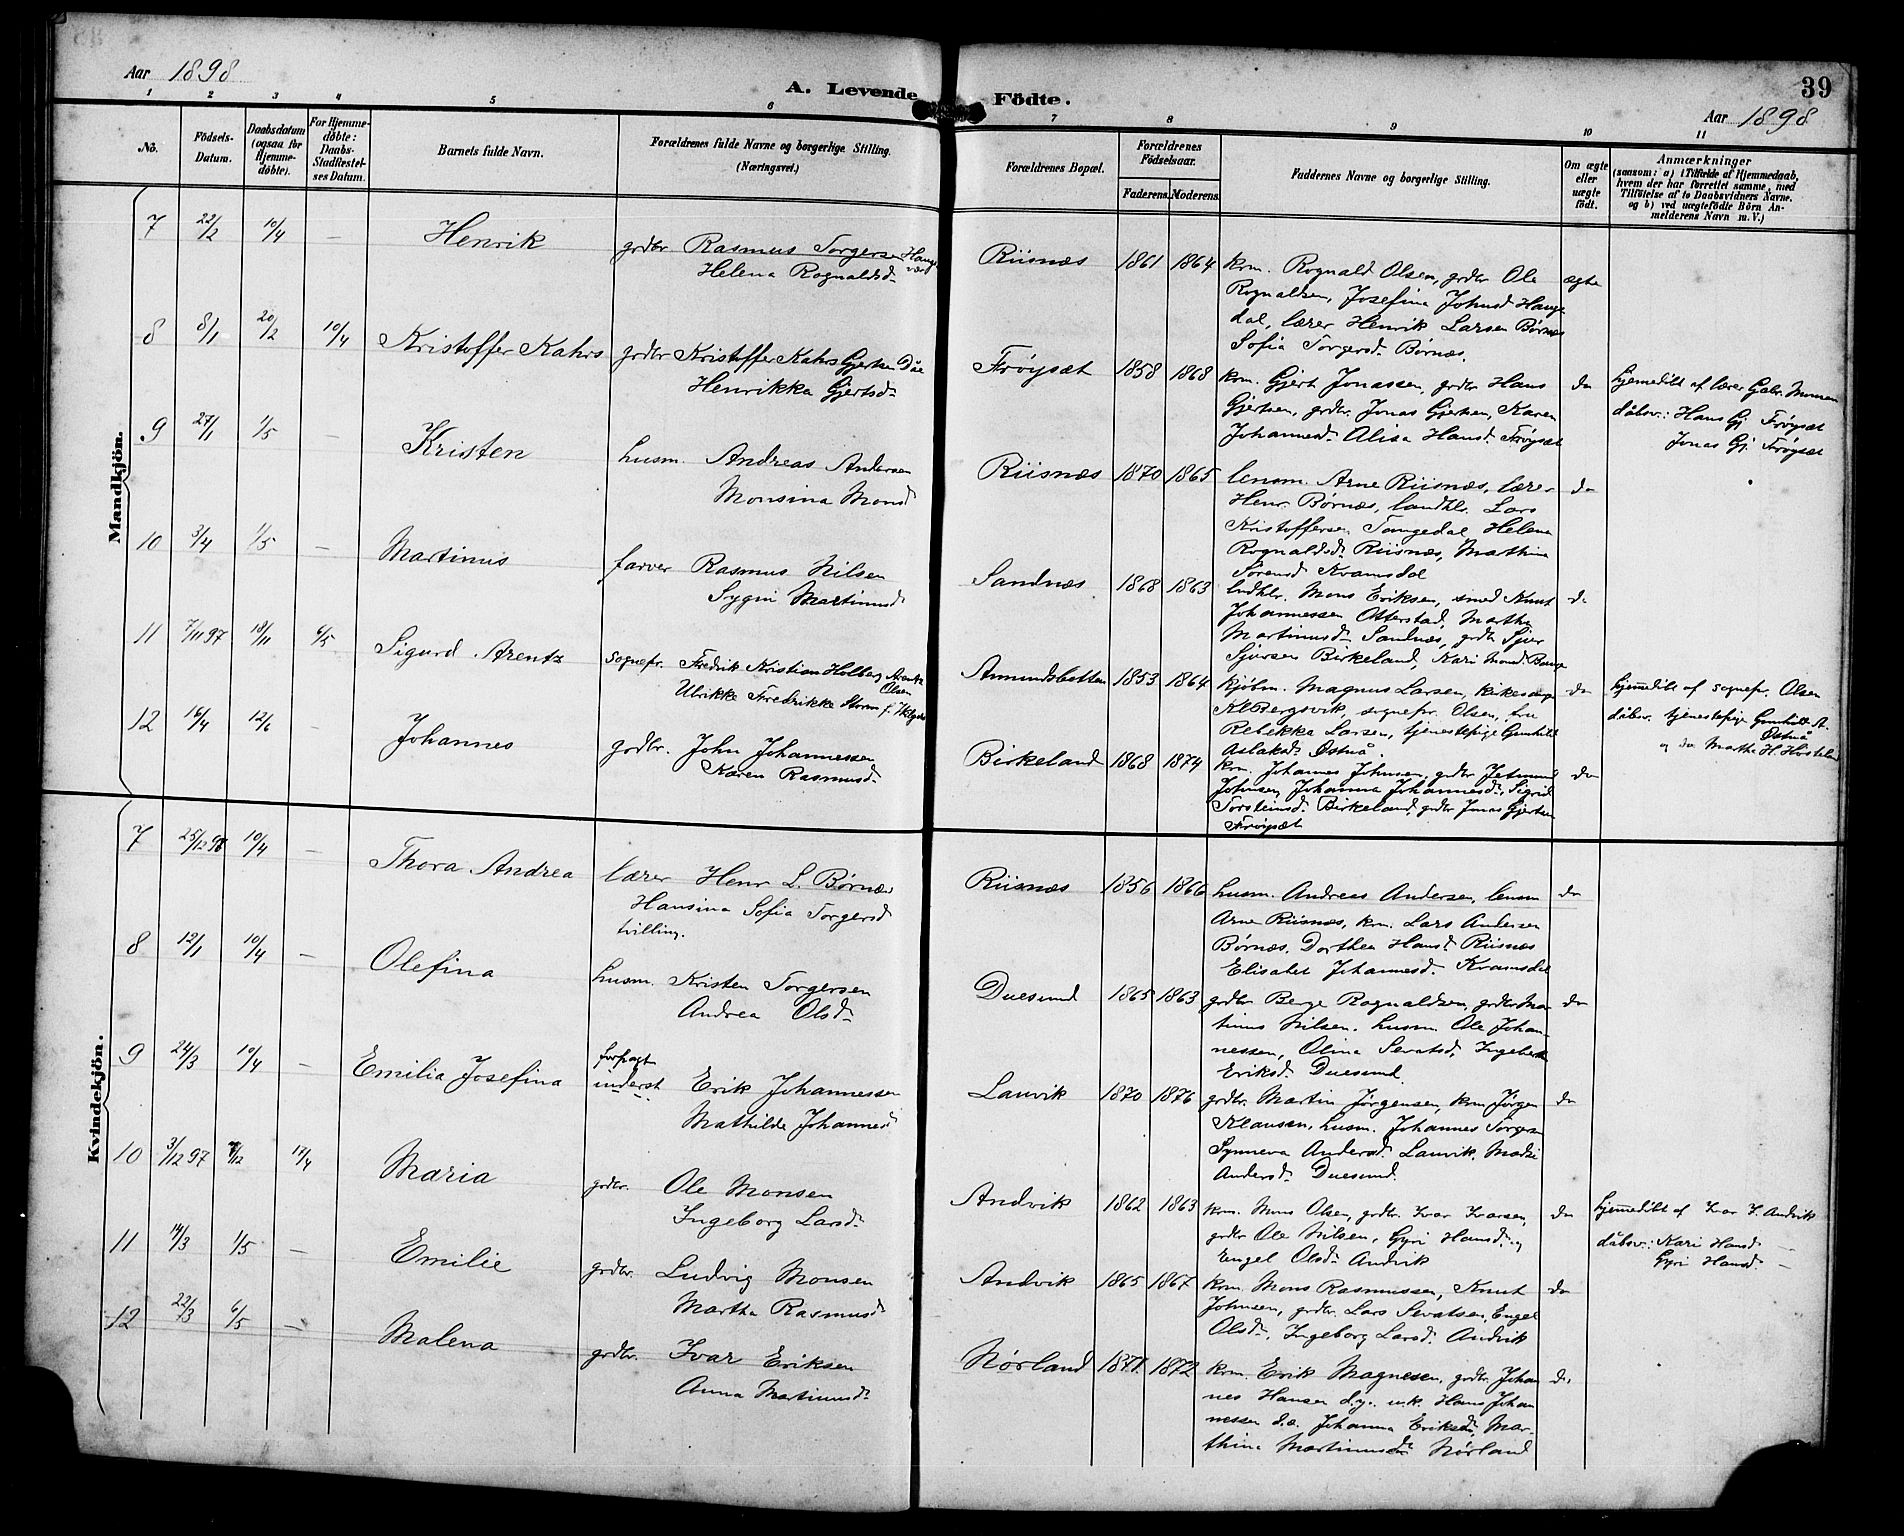 Aar 1898
A. Levende
Födte.
39
Aar 1898
1 2 3 4 5 6 7 8 9 10 11
No.
Födsels-
Datum.
Daabsdatum
(ogsaa for
Hjemme-
döbte).
For Hjemme-
döbte:
Daabs-
Stadfæstel-
ses Datum.
Barnets fulde Navn.
Forældrenes fulde Navne og borgerlige Stilling.
(Næringsvei.)
Forældrenes Bopæl.
Forældrenes
Födselsaar.
Faderens. Moderens.
Faddernes Navne og borgerlige Stilling.
Om ægte
eller
uægte
födt.
Anmærkninger
(saasom: a) i Tilfælde af Hjemmedaab,
hvem der har forrettet samme, med
Tilföielse af to Daabsvidners Navne.
og b) ved uægtefödte Börn An-
melderens Navn m. V.)
Mandkjön.
7 22/2 10/4 — Henrik
grdbr. Rasmus Torgersen
Helena Rognaldsd.
Riisnæs 1861 1864
krm. Rognald Olsen, grdbr Ole
Rognaldsen, Josefina Johnsd Hauge
dal, lærer Henrik Larsen Børnæs
Sofia Torgersd. Børnæs.
ægte
8 8/1 20/2 10/4 Kristoffer Kahrs
grdbr Kristoffer Kahrs Gjertsen Däe
Henrikka Gjertsd.
Frøysæt 1858 1868
krm. Gjert Jonassen, grdbr Hans
Gjertsen, grdbr. Jonas Gjertsen, Karen
Johannesd. Alisa Hansd. Frøysæt
do
hjemedöbt af lærer Gabr. Monsen
dåbsv.: Hans Gj. Frøysæt
Jonas Gj. Frøysæt
9 27/1 1/5 — Kristen
husm. Andreas Andersen
Monsina Monsd
Riisnæs 1870 1865
lensm. Arne Riisnæs, lærer
Henr. Børnæs, landhlr. Lars
Kristoffersen Tangedal, Helena
Rognaldsd. Riisnæs, Mathina
Sørensd Kvamsdal
do
10 3/4 1/5 — Martinus
farver Rasmus Nilsen
Sygni Martinusd
Sandnæs 1868 1863
lndhlr. Mons Eriksen, smed Knut
Johannessen Otterstad, Martha
Martinusd. Sandnæs, grdbr Sjur
Sjursen Birkeland, Kari Monsd
do
11 7/11 97 18/11 6/5 Sigurd Arentz
sognepr. Fredrik Kristian Holberg Arentz
Olsen
Ulrikke Fredrikke Storm f.
Amundsbotten 1853 1864
kjøbm. Magnus Larsen, kirkesanger
Kl Bergsvik, sognepr. Olsen, fru
Rebekka Larsen, tjenestepige Gunhild
Aslaksd. Østnå
do
hjemedöbt af sognepr. Olsen
dåbsv. tjenestepige Gunhild A.
Østnå
og do Martha H.
12 16/4 12/6 — Johannes
grdbr. John Johannessen
Karen Rasmusd.
Birkeland 1868 1874
krm. Johannes Johnsen, grdbr Jetmund
Johnsen, Johanna Johannesd., Sigrid
Torsteinsd. Birkeland, grdbr Jonas Gjertsen
Frøysæt
do
Kvindekjön.
7 25/12 10/4 — Thora Andrea
lærer Henr L. Børnæs
Hansina Sofia Torgersd
tvilling.
Riisnæs 1856 1866
husm. Andreas Andersen, lensm
Arne Riisnæs, krm. Lars Andersen
Børnæs. Dorthea Hansd. Riisnæs
Elisabet Johannesd. Kvamsdal
do
8 12/1 10/4 — Olefina
husm. Kristen Torgersen
Andrea Olsd.
Duesund 1865 1863
grdbr Berge Rognaldsen, grdbr Mar-
tinus Nilsen. husm. Ole Johan-
nessen, Olina Sevatsd, Ingeborg
Eriksd. Duesund.
do
9 24/3 10/4 — Emilia Josefina
forpagt
inderst. Erik Johannessen
Mathilde Johannesd
Lauvik 1870 1876
grdbr. Martin Jørgensen, krm Jørgen
Klausen, husm. Johannes Torgersen
Synneva Andersd. Lauvik.
Andersd. Duesund.
do
10 3/12 97 12 17/4 Maria
grdbr. Ole Monsen
Ingeborg Larsd.
Andvik 1862 1863
krm. Mons Olsen, grdbr. Ivar Ivarsen,
grdbr Ole Nilsen, Gyri Hansd. og
Engel Olsd. Andvik
do
hjemmedöbt af Ivar I. Andvik
dåbsv.: Kari Hansd. —
Gyri Hansd. —
11 14/3 1/5 — Emilie
grdbr. Ludvig Monsen
Martha Rasmusd
Andvik 1865 1867
krm. Mons Rasmussen, Knut
Johnsen, grdbr. Lars Sevatsen, Engel
Olsd., Ingeborg Larsd. Andvik
do
12 22/3 6/5 — Malena
grdbr. Ivar Eriksen
Anna Martinusd.
Nørland 1871. 1872
krm. Erik Magnesen, grdbr. Johan
nes Hansen d.y. u.k. Hans Johan
nessen d.æ. Johanna Eriksd., Mar-
thina Martinusd. Nørland
do